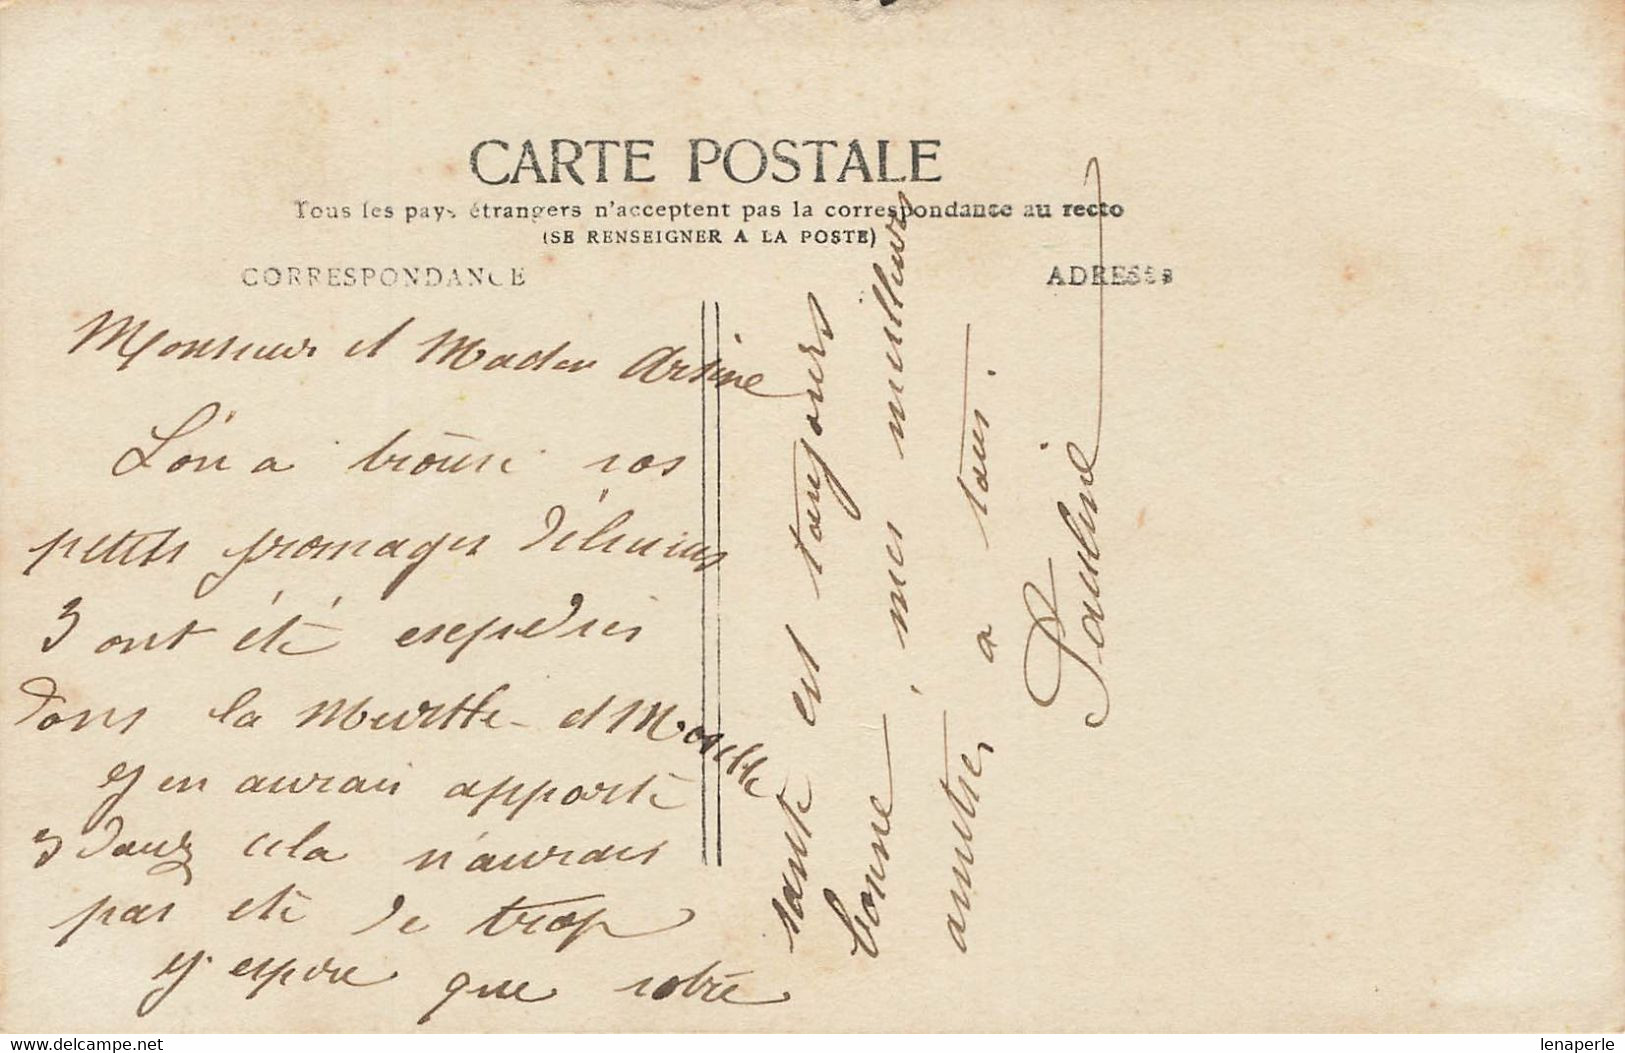 CARTE POSTALE
Tous les pays étrangers n'acceptent pas la correspondance au recto
(SE RENSEIGNER A LA POSTE)
CORRESPONDANCE
ADRESSE
Monsieur et Madan Arsine
L'on a trouvé vos
petits fromages délicieux
3 ont été expédiés
dans la Murthe et Moselle
j'en aurais apporté
3 douz cela n'aurais
pas été de trop
j'espère que votre
santé est toujours
bonne, mes meilleurs
amitiés a tous.
Pauline
delcampe.net
lenaperle